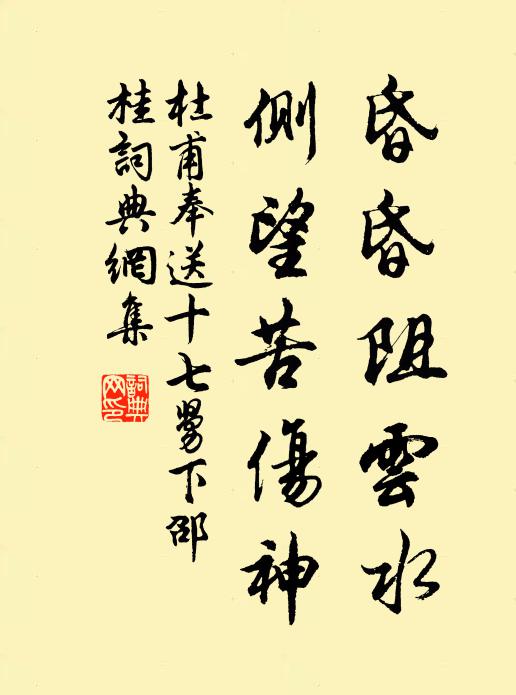 昏昏阻雲水
側望苦傷神
杜甫奉送十七舅下邵
桂詞典網集
詞典
网印